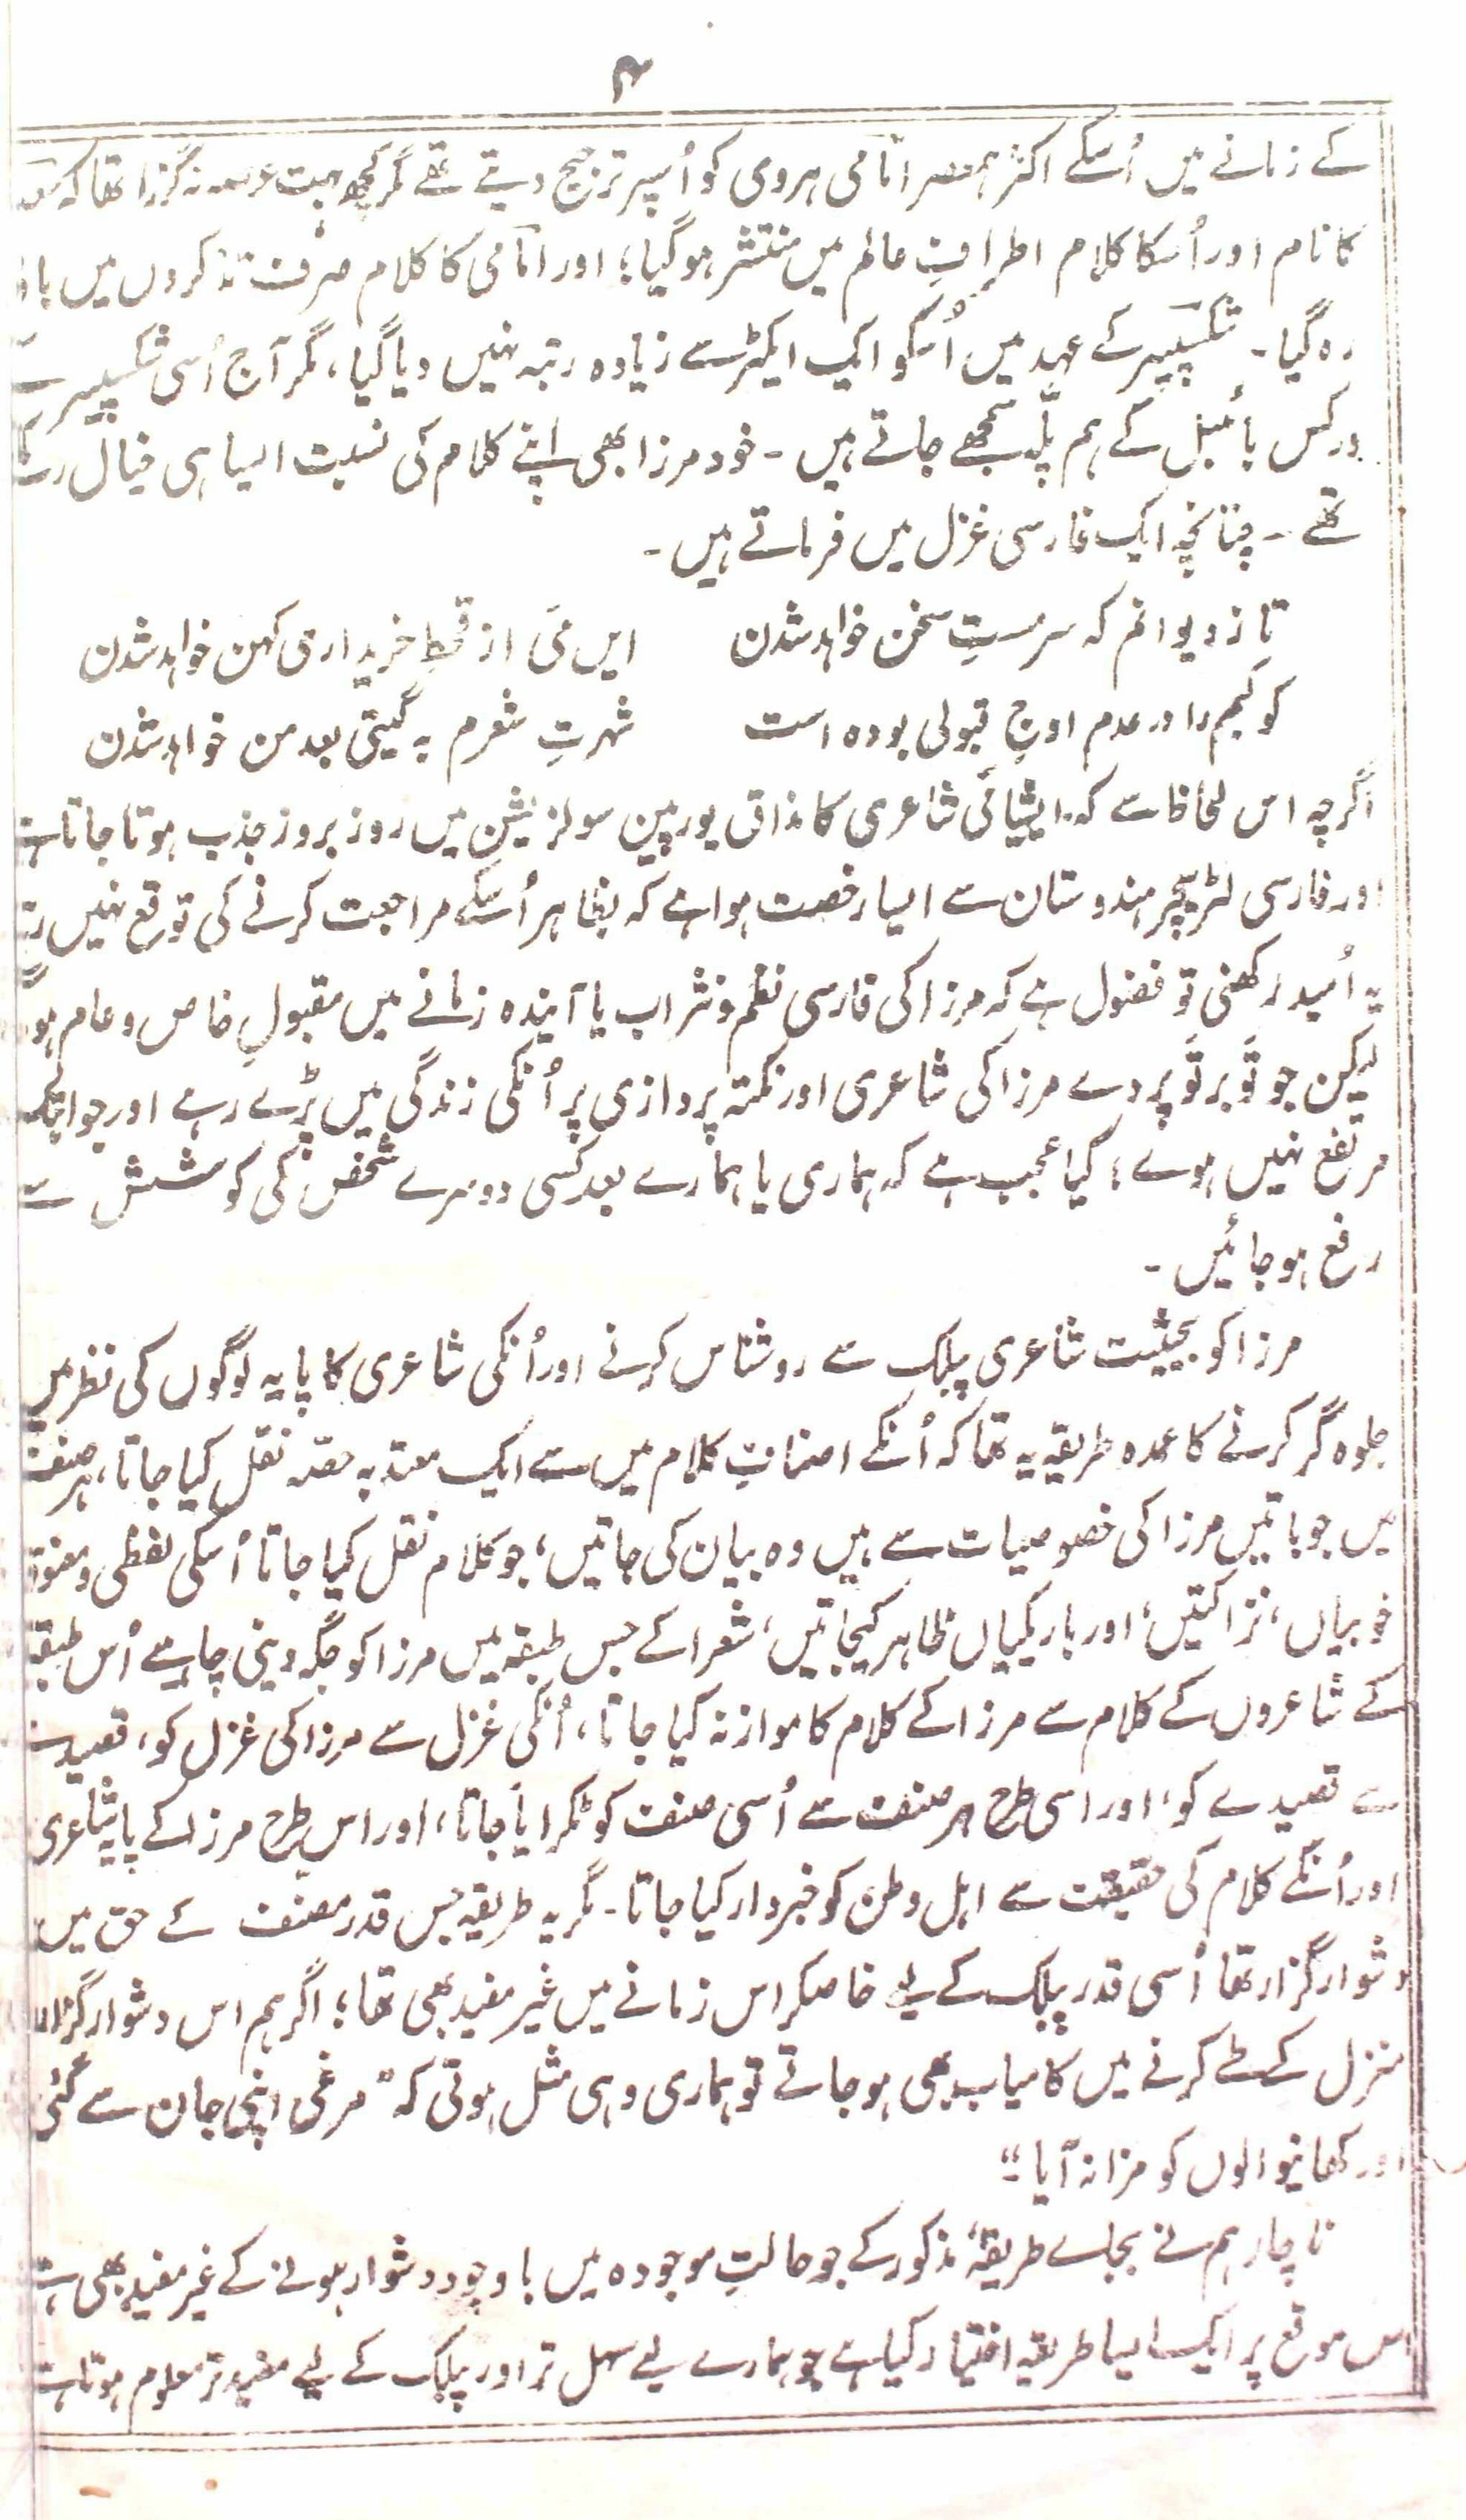 ۴
کے زمانے میں اُسکے اکثر ہمعصر امامی ہروی کو اُسپر ترجیح دیتے تھے مگر کچھ بہت عرصہ نہ گزرا تھا کہ
کا نام اور اُسکا کلام اطرافِ عالم میں منتشر ہوگیا؛ اور امامی کا کلام صرف تذکروں میں
رہ گیا۔ شکسپیر کے عہد میں اُسکو ایک ایکٹر سے زیادہ رتبہ نہیں دیا گیا، مگر آج اُسی شکسپیر
ورکس بائبل کے ہم پلّہ سمجھے جاتے ہیں۔ خود مرزا بھی اپنے کلام کی نسبت ایسا ہی خیال
تھے۔ چنانچہ ایک فارسی غزل میں فرماتے ہیں۔
تا ز دیوانم کہ سرمستِ سخن خواہد شدن ایں مَی از قحطِ خریداری کہن خواہد شدن
کوکبم را در عدم اوجِ قبولی بودہ است شہرتِ شعرم بہ گیتی بعد من خواہد شدن
اگرچہ اس لحاظ سے کہ ایشیائی شاعری کا مذاق یورپین سولزیشن میں روز بروز جذب ہوتا جاتا ہے
اور فارسی لٹریچر ہندوستان سے ایسا رخصت ہوا ہے کہ بظاہر اُسکے مراجعت کرنے کی توقع نہیں
یہ اُمید رکھنی تو فضول ہے کہ مرزا کی فارسی نظم و نثر اب یا آیندہ زمانے میں مقبولِ خاص و عام
لیکن جو تَو بر تَو پردے مرزا کی شاعری اور نکتہ پردازی پر اُنکی زندگی میں پڑے رہے اور جو ابتک
مرتفع نہیں ہوے؛ کیا عجب ہے کہ ہماری یا ہمارے بعد کسی دوسرے شخص کی کوشش سے
رفع ہوجائیں۔
مرزا کو بحیثیت شاعری پبلک سے روشناس کرنے اور اُنکی شاعری کا پایہ لوگوں کی نظر میں
جلوہ گر کرنے کا عمدہ طریقہ یہ تھا کہ اُنکے اصنافِ کلام میں سے ایک معتد بہ حصّہ نقل کیا جاتا، ہر صنف
میں جو باتیں مرزا کی خصوصیات سے ہیں وہ بیان کی جاتیں، جو کلام نقل کیا جاتا اُسکی لفظی و معنوی
خوبیاں، نزاکتیں، اور باریکیاں ظاہر کیجاتیں، شعرا کے جس طبقہ میں مرزا کو جگہ دینی چاہیے اُس طبقہ
کے شاعروں کے کلام سے مرزا کے کلام کا موازنہ کیا جاتا، اُنکی غزل سے مرزا کی غزل کو، قصیدے
سے قصیدے کو، اور اسی طرح ہر صنف سے اُسی صنف کو ٹکرایا جاتا، اور اس طرح مرزا کے پایۂ شاعری
اور اُنکے کلام کی حقیقت سے اہلِ وطن کو خبردار کیا جاتا۔ مگر یہ طریقہ جس قدر مصنف کے حق میں
دشوار گزار تھا اُسی قدر پبلک کے لیے خاصکر اس زمانے میں غیر مفید بھی تھا؛ اگر ہم اس دشوار گزار
منزل کے طے کرنے میں کامیاب بھی ہوجاتے تو ہماری وہی مثل ہوتی کہ "مرغی اپنی جان سے گئی
اور کھانیوالوں کو مزا نہ آیا۔"
ناچار ہم نے بجاے طریقۂ مذکور کے جو حالتِ موجودہ میں باوجود دشوار ہونے کے غیر مفید بھی ہے
اس موقع پر ایک ایسا طریقہ اختیار کیا ہے جو ہمارے لیے سہل تر اور پبلک کے لیے مفید تر معلوم ہوتا ہے